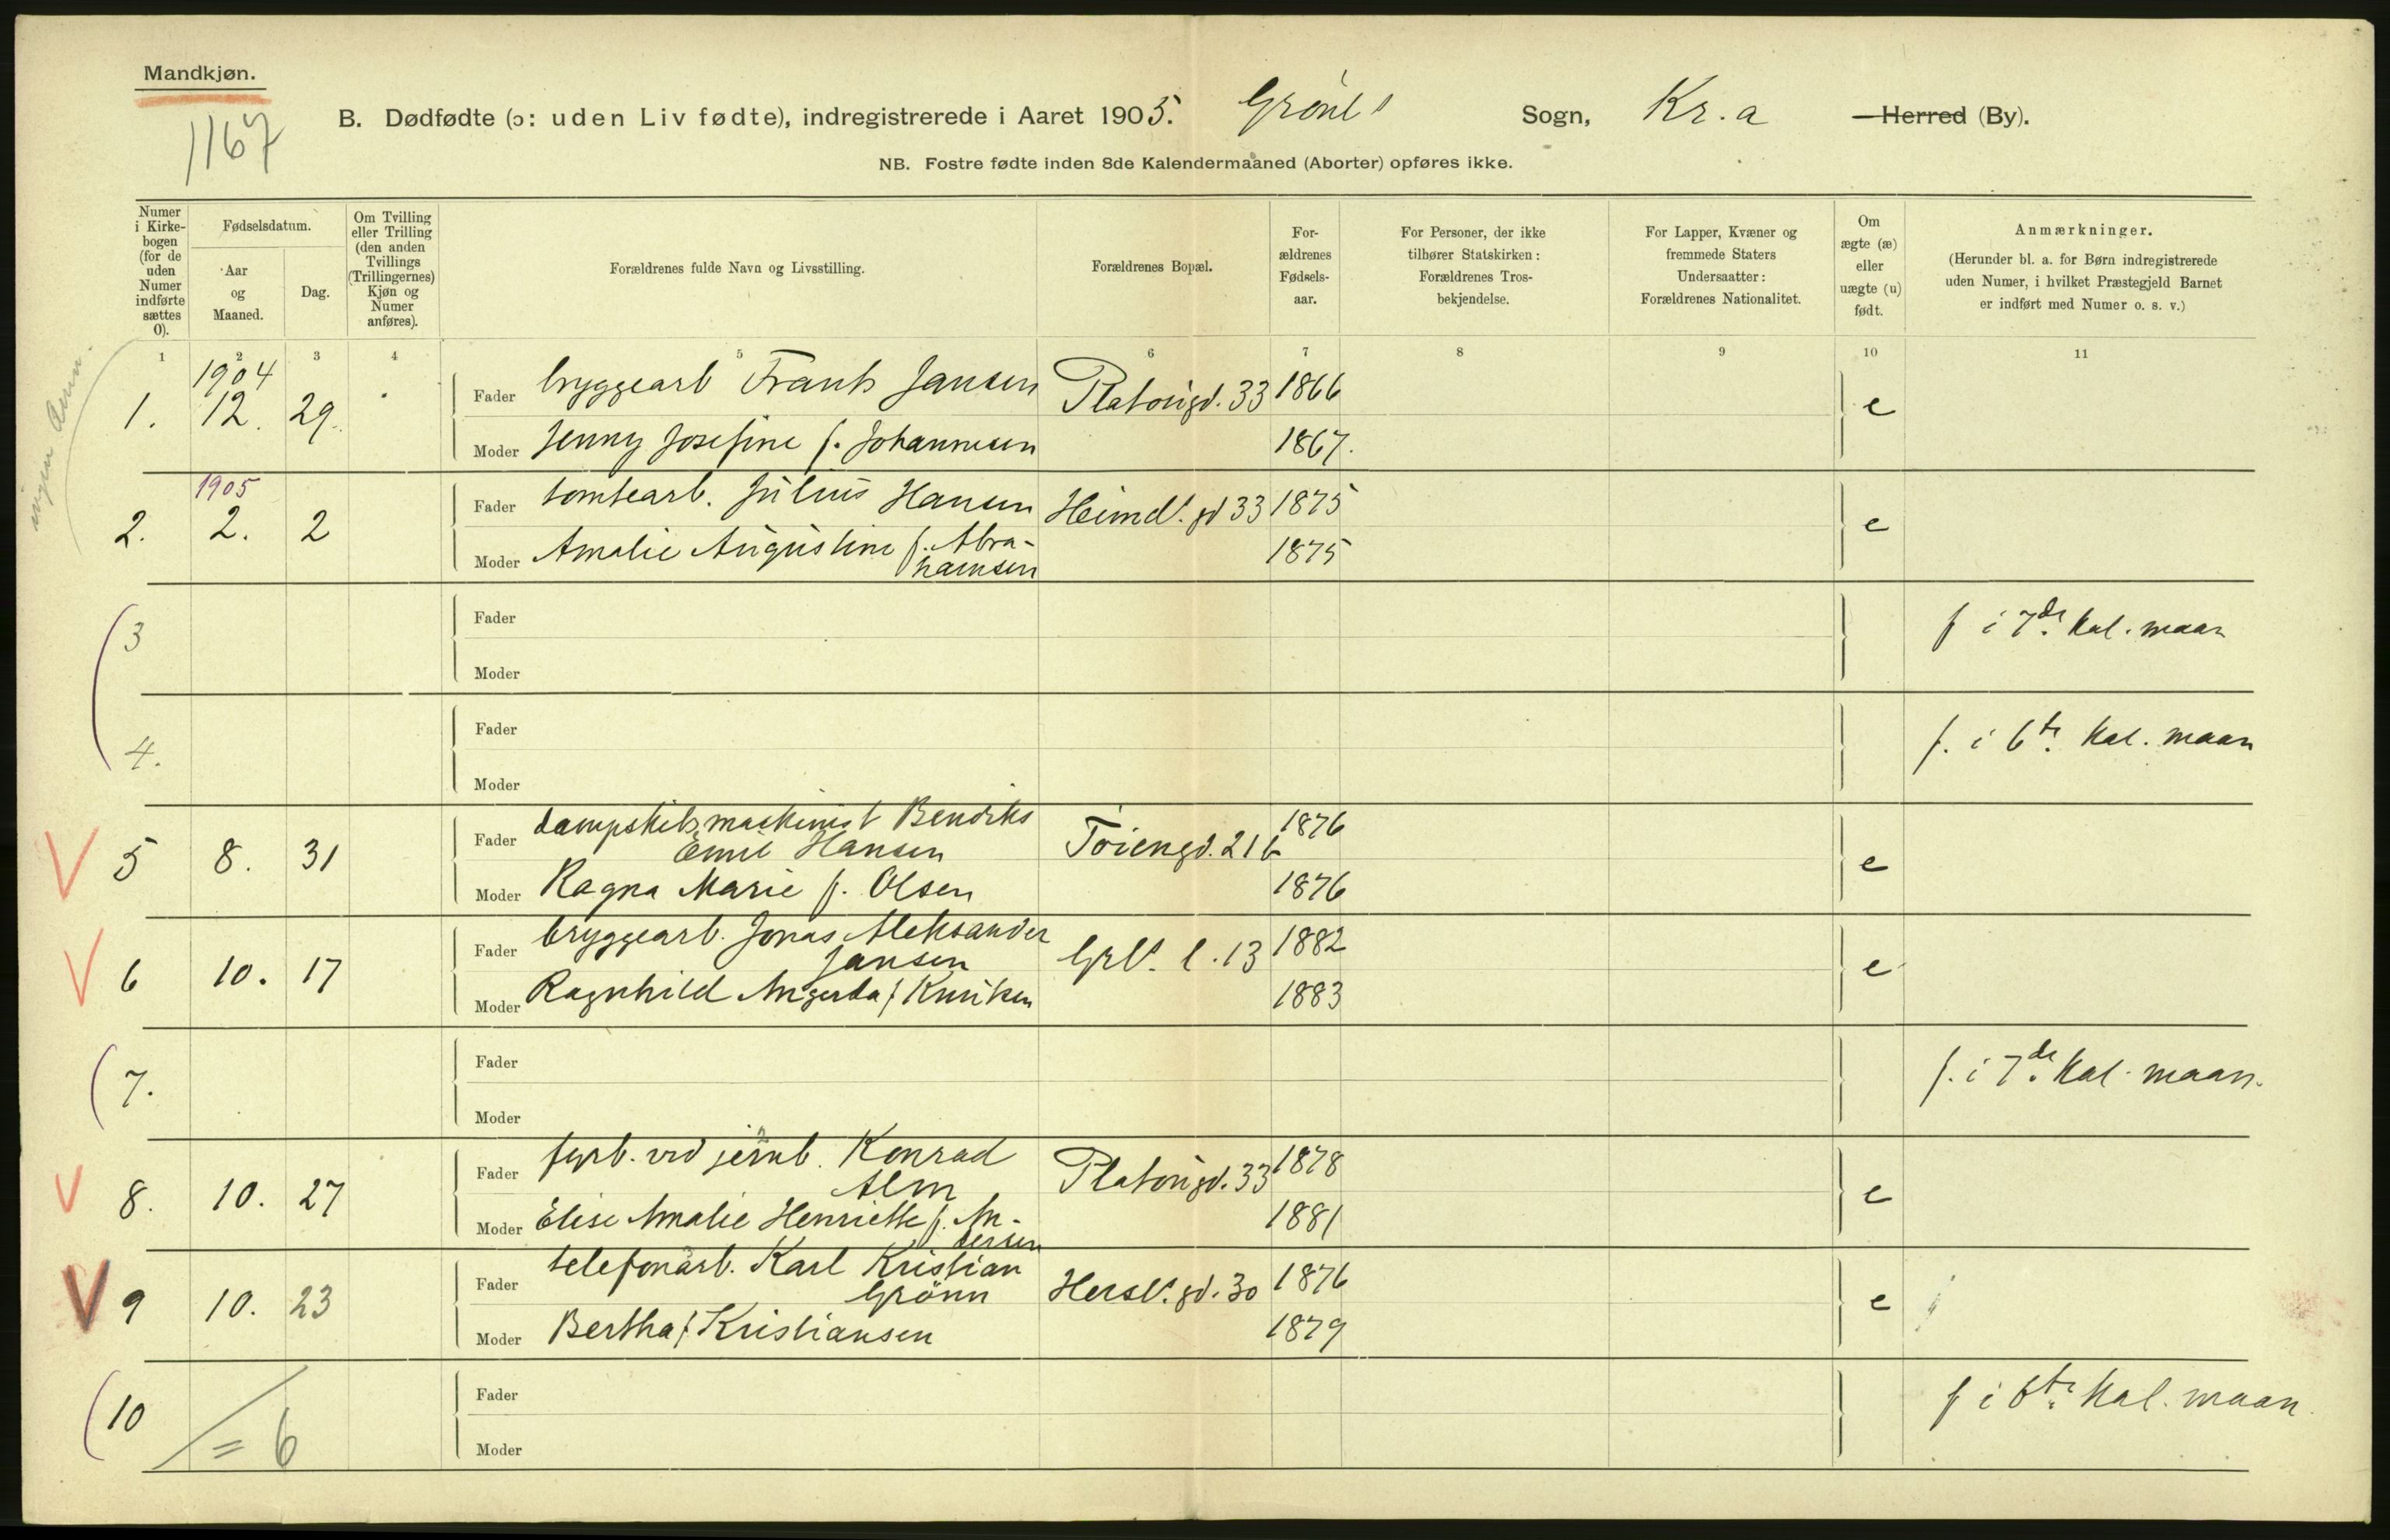 Mandkjøn.
1167
B. Dødfødte (ɔ: uden Liv fødte), indregistrerede i Aaret 1905. Grønl. Sogn, Kr.a Herred (By).
NB. Fostre fødte inden 8de Kalendermaaned (Aborter) opføres ikke.
Numer i Kirkebogen (for de uden Numer indførte sættes 0).
Fødselsdatum.
Aar og Maaned.
Dag.
Om Tvilling eller Trilling (den anden Tvillings (Trillingernes) Kjøn og Numer anføres).
Forældrenes fulde Navn og Livsstilling.
Forældrenes Bopæl.
Forældrenes Fødselsaar.
For Personer, der ikke tilhører Statskirken: Forældrenes Trosbekjendelse.
For Lapper, Kvæner og fremmede Staters Undersaatter: Forældrenes Nationalitet.
Om ægte (æ) eller uægte (u) født.
Anmærkninger.
(Herunder bl. a. for Børn indregistrerede uden Numer, i hvilket Præstegjeld Barnet er indført med Numer o. s. v.)
1 2 3 4 5 6 7 8 9 10 11
1904
1. 12. 29. Fader bryggearb Frants Jansen Platousgd. 33 1866 e
Moder Jenny Josefine f. Johannesen 1867.
1905
2. 2. 2 Fader tomtearb. Julius Hansen Heimdl. gd 33 1875 e
Moder Amalie Augustine f. Abra-
hamsen 1875
3 Fader f i 7de Kal. maan
Moder
4. Fader f. i 6te Kal. maan
Moder
5 8. 31 Fader dampskibsmaskinist Bendiks
Emil Hansen Tøiengd. 21 b 1876 e
Moder Ragna Marie f. Olsen 1876
6 10. 17 Fader bryggearb. Jonas Aleksander
Jansen Grl. l. 13 1882 e
Moder Ragnhild f Knutsen 1883
7. Fader f. i 7de Kal. maan.
Moder
8. 10. 27 Fader fyrb. ved jernb. Konrad
Alm Platousgd. 33 1878 e
Moder Elise Amalie Henriette f. An-
dersen 1881
9 10. 23 Fader telefonarb. Karl Kristian
Grönn Hersl. gd. 30 1876 e
Moder Bertha f Kristiansen 1879
10 Fader f i 6te Kal. maan
= 6 Moder